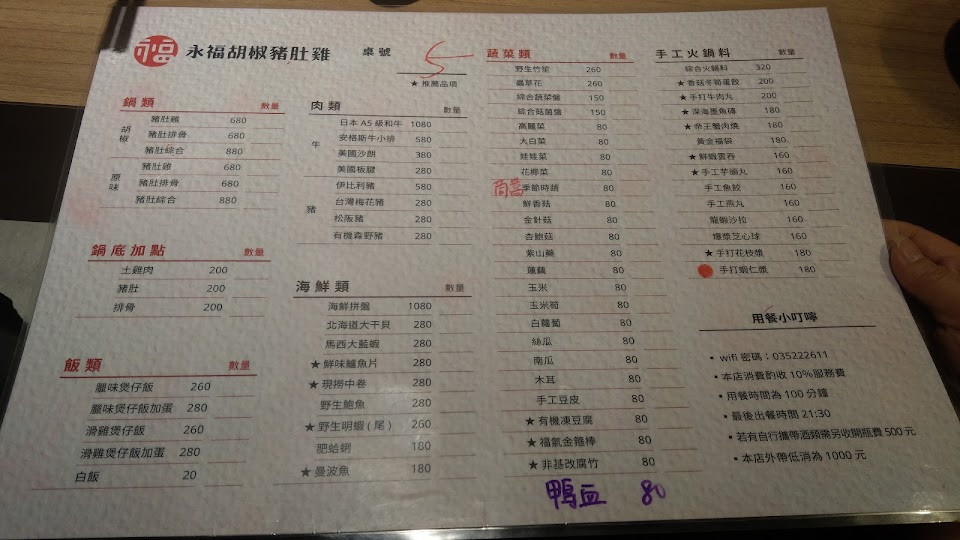 永福胡椒豬肚雞
桌號 5
★ 推薦品項
鍋類 數量
胡椒
豬肚雞 680
豬肚排骨 680
豬肚綜合 880
原味
豬肚雞 680
豬肚排骨 680
豬肚綜合 880
鍋底加點 數量
土雞肉 200
豬肚 200
排骨 200
飯類 數量
臘味煲仔飯 260
臘味煲仔飯加蛋 280
滑雞煲仔飯 260
滑雞煲仔飯加蛋 280
白飯 20
肉類 數量
牛
日本 A5 級和牛 1080
安格斯牛小排 580
美國沙朗 380
美國板腱 280
豬
伊比利豬 580
台灣梅花豬 280
松阪豬 280
有機森野豬 280
海鮮類 數量
海鮮拼盤 1080
北海道大干貝 280
馬西大藍蝦 280
★ 鮮味鱸魚片 280
★ 現撈中卷 280
野生鮑魚 280
★ 野生明蝦 ( 尾 ) 260
肥蛤蜊 180
★ 曼波魚 180
蔬菜類 數量
野生竹笙 260
蟲草花 260
綜合蔬菜盤 150
綜合菇菌盤 150
高麗菜 80
大白菜 80
娃娃菜 80
花椰菜 80
茼蒿 季節時蔬 80
鮮香菇 80
金針菇 80
杏鮑菇 80
紫山藥 80
蓮藕 80
玉米 80
玉米筍 80
白蘿蔔 80
絲瓜 80
南瓜 80
木耳 80
手工豆皮 80
★ 有機凍豆腐 80
★ 福氣金箍棒 80
★ 非基改腐竹 80
鴨血 80
手工火鍋料 數量
綜合火鍋料 320
★ 香菇冬筍蛋餃 200
★ 手打牛肉丸 200
★ 深海墨魚磚 180
★ 帝王蟹肉燒 180
黃金福袋 180
★ 鮮蝦雲吞 160
★ 手工芋頭丸 160
手工魚餃 160
手工燕丸 160
龍蝦沙拉 160
爆漿芝心球 160
★ 手打花枝漿 180
手打蝦仁漿 180
用餐小叮嚀
• wifi 密碼：035222611
• 本店消費酌收 10% 服務費
• 用餐時間為 100 分鐘
• 最後出餐時間 21:30
• 若有自行攜帶酒類需另收開瓶費 500 元
• 本店外帶低消為 1000 元